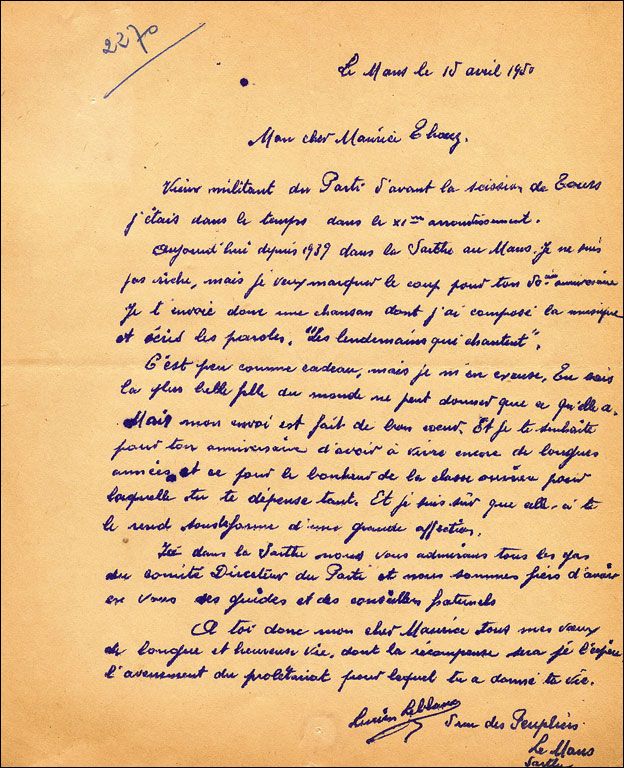 2270
Le Mans le 15 avril 1950
Mon cher Maurice Thorez.
Vieux militant du Parti d'avant la scission de Tours
j'étais dans le temps dans le XIème arrondissement.
Aujourd'hui depuis 1939 dans la Sarthe au Mans. Je ne suis
pas riche, mais je veux marquer le coup pour ton 50ème anniversaire
Je t'envoie donc une chanson dont j'ai composé la musique
et écrit les paroles. "Les lendemains qui chantent".
C'est peu comme cadeau, mais je m'en excuse. Tu sais
la plus belle fille du monde ne peut donner que ce qu'elle a.
Mais mon envoi est fait de bon coeur. Et je te souhaite
pour ton anniversaire d'avoir à vivre encore de longues
années et ce pour le bonheur de la classe ouvrière pour
laquelle tu te dépense tant. Et je suis sûr que celle-ci te
le rend sous forme d'une grande affection.
Ici dans la Sarthe nous vous admirons tous les gas
du comité Directeur du Parti et nous sommes fiers d'avoir
en vous des guides et des conseillers fraternels
A toi donc mon cher Maurice tous mes vœux
de longue et heureuse vie, dont la récompense sera je l'espère
l'avènement du prolétariat pour lequel tu a donné ta vie.
Lucien Leblanc
5 rue des Peupliers
Le Mans
Sarthe